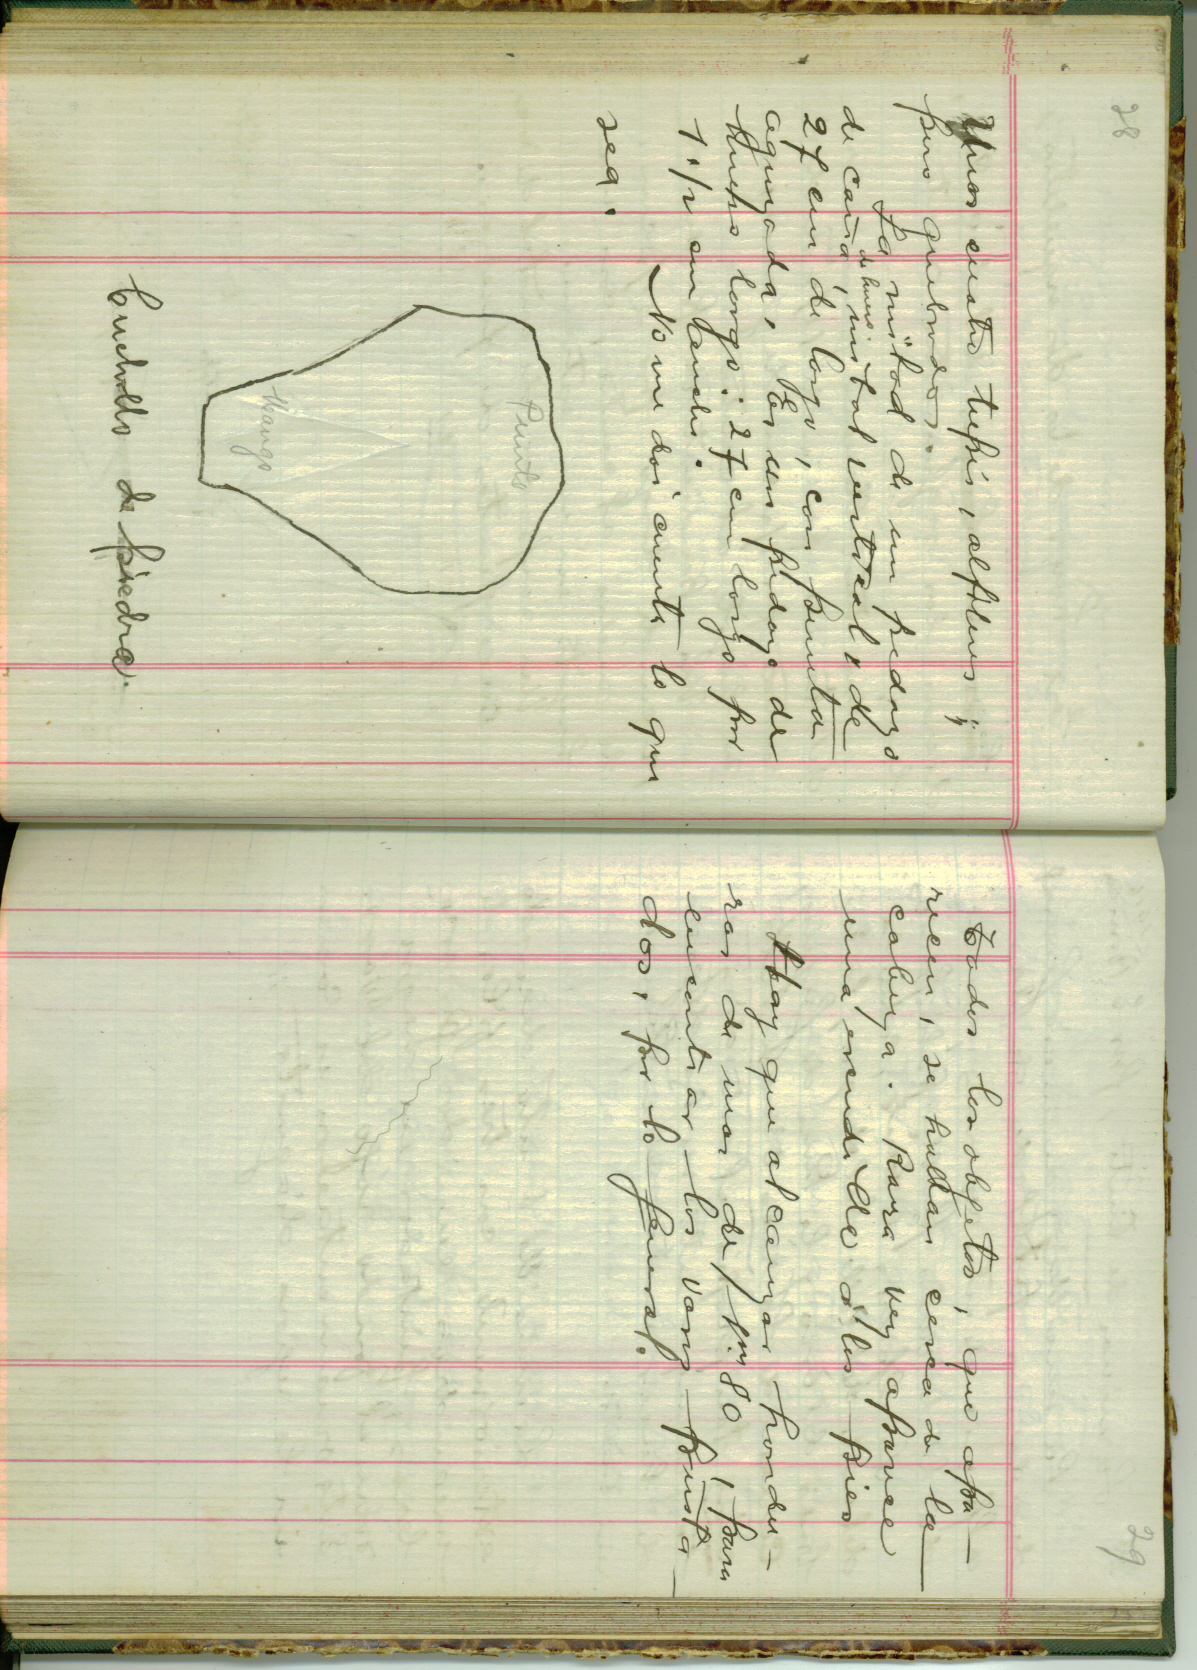 28
Unos cuatro tupis, alfileres,
pero quebrados.
La mitad de un pedazo
de caña de hueso, mitad vertical, de
27 cm de largo, con punta
aguzada. Es un pedazo de
hueso largo: 27 cm largo por
1 1/2 cm ancho.
No me doi cuenta lo que
sea.
Punta
Mango
Cuchillo de piedra.
29
Todos los objetos, que apa-
recen, se hallan cerca de la
cabeza. Rara vez aparece
una escudilla á los pies
Hay que alcanzar hondu-
ras de mas de 1m 80, para
encontrar los vasos pinta-
dos, por lo jeneral.